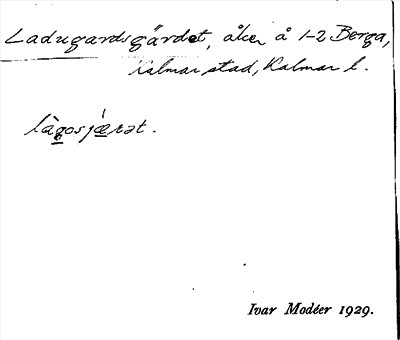 Ladugardsgärdet, åker å 1-2 Berga,
Kalmar stad, Kalmar l.
làgosjærət.
Ivar Modéer 1929.